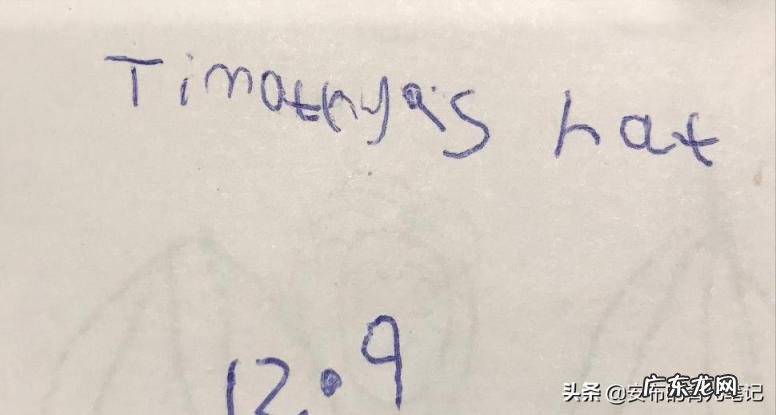 Timothy's hat
12.9
头条 @安布布育儿笔记
广东龙网